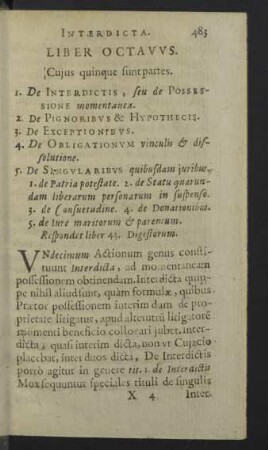 INTERDICTA. 485
LIBER OCTAVVS.
Cujus quinque sunt partes.
1. De INTERDICTIS, seu de POSSES-
SIONE momentanea.
2. De PIGNORIBUS & HYPOTHECIS.
3. De EXCEPTIONIBUS.
4. De OBLIGATIONUM vinculis & dis-
solutione.
5. De SINGULARIBUS quibusdam juribus,
1. de Patria potestate. 2. de Statu quarun-
dam liberarum personarum in suspenso.
3. de Consuetudine. 4. de Donationibus.
5. de Iure maritorum & parentum.
Respondet liber 43. Digestorum.
VNdecimum Actionum genus consti-
tuunt Interdicta, ad momentaneam
possessionem obtinendam. Interdicta quip-
pe nihil aliud sunt, quàm formulæ, quibus
Prætor possessionem interim dum de pro-
prietate litigatur, apud alterutrū litigatorē
momenti beneficio collocari jubet, inter-
dicta, quasi interim dicta, non vt Cujacio
placebat, inter duos dicta, De Interdictis
porrò agitur in genere tit. 1. de Interdictis
Mox sequuntur speciales tituli de singulis
X 4 Inter-